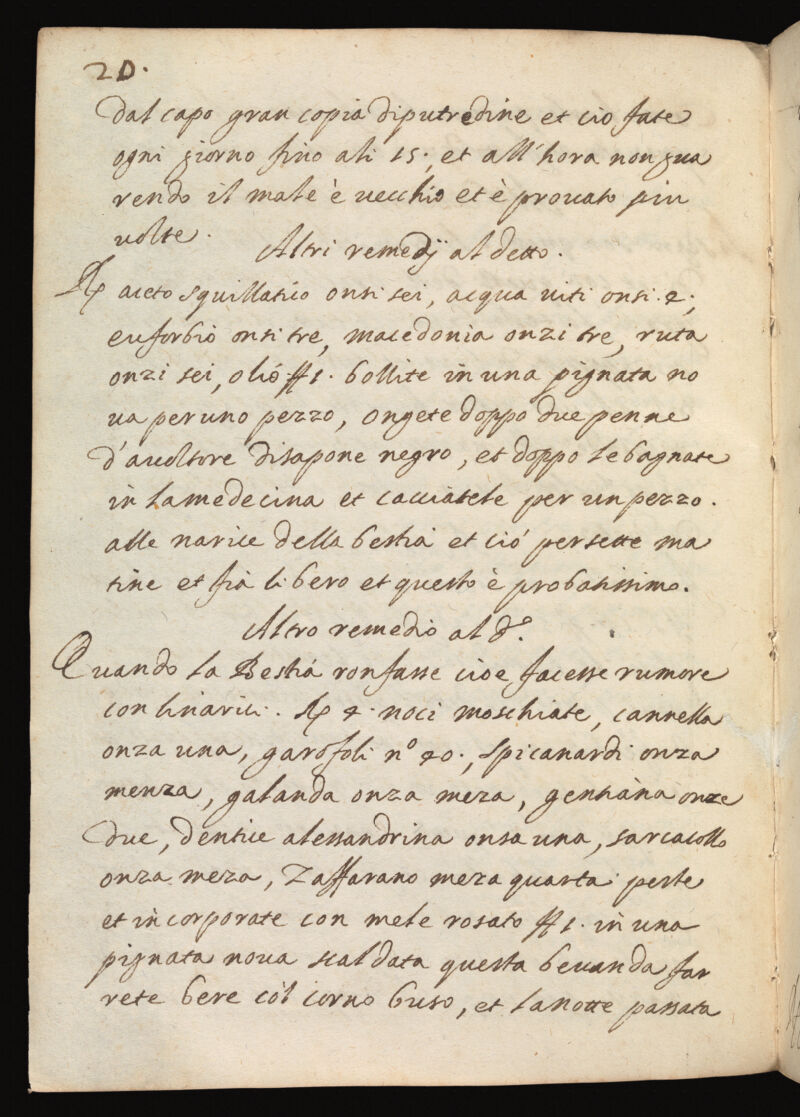 20.
dal capo gran copia di putredine et ciò fate
ogni giorno fino ali 15., et all'hora non gua
rendo il male è vecchio et è provato piu
volte.
Altri remedÿ al detto.
℞ aceto squillatico onsi sei, acqua viti onsi 4.,
euforbio onsi tre, macedonia onzi tre, ruta
onzi sei, olió ℔ 1. bollite in una pignata no
va per uno pezzo, ongete doppo due penne
d'avoltore di sapone negro, et doppo le bagnate
in la medecina et cacciatele per un pezzo.
alle narice della bestia et ció per sette ma
tine et fia libero et questo è probatissimo.
Altro remedio al d.º
Quando la Bestia ronfasse cioe facesse rumore
con li narici. ℞ 4. noci moschiate, cannella
onza una, garofoli nº 40., spicanardi onza
menza, galanda onza meza, gentiana onze
due, dentice alessandrina onsa una, sarcacollo
onza meza, Zaffarano meza quarta peste
et incorporate con mele rosato ℔ 1. in una
pignata nova scaldata questa bevanda far
rete bere cól corno buso, et la notte passata